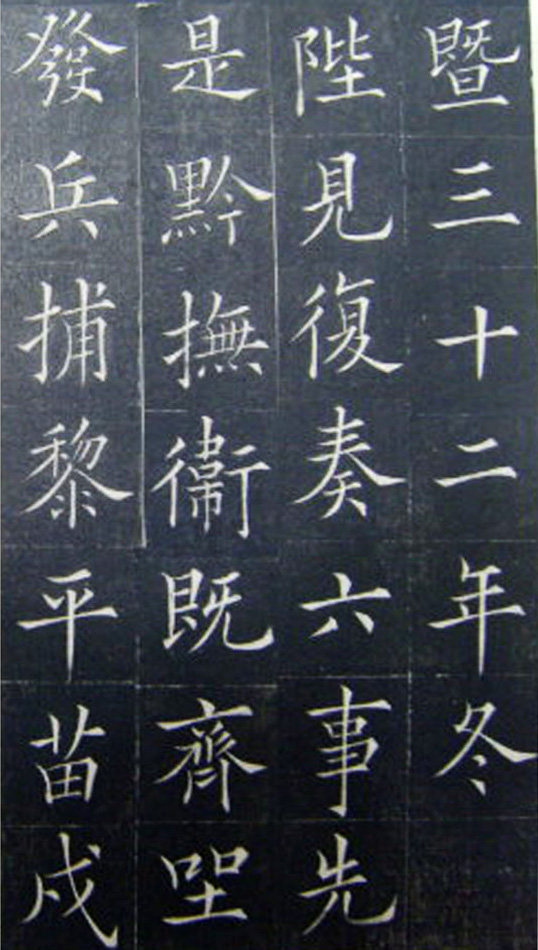 暨三十二年冬
陛見復奏六事先
是黔撫衞既齊㘸
發兵捕黎平苗戍